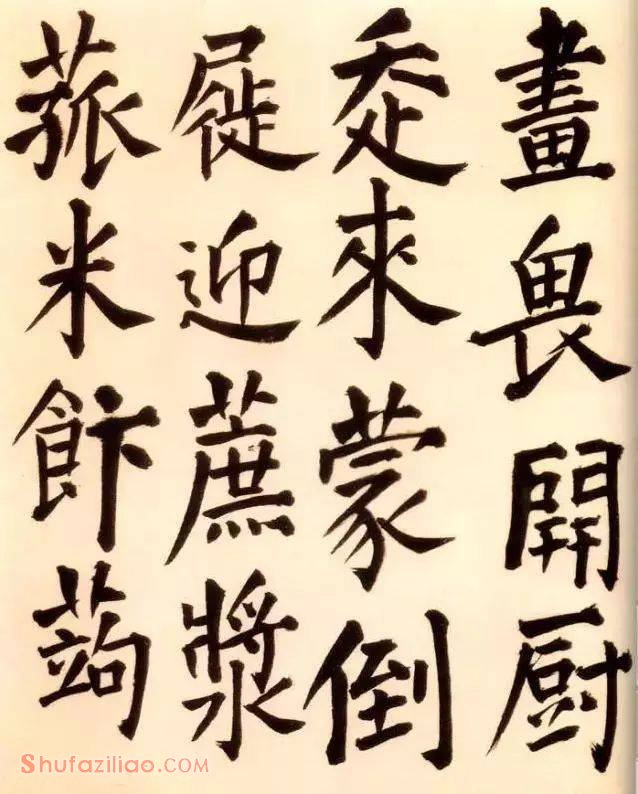 畫畏開厨
走來蒙倒
屣迎蔗漿
菰米飰蒟
Shufaziliao.COM